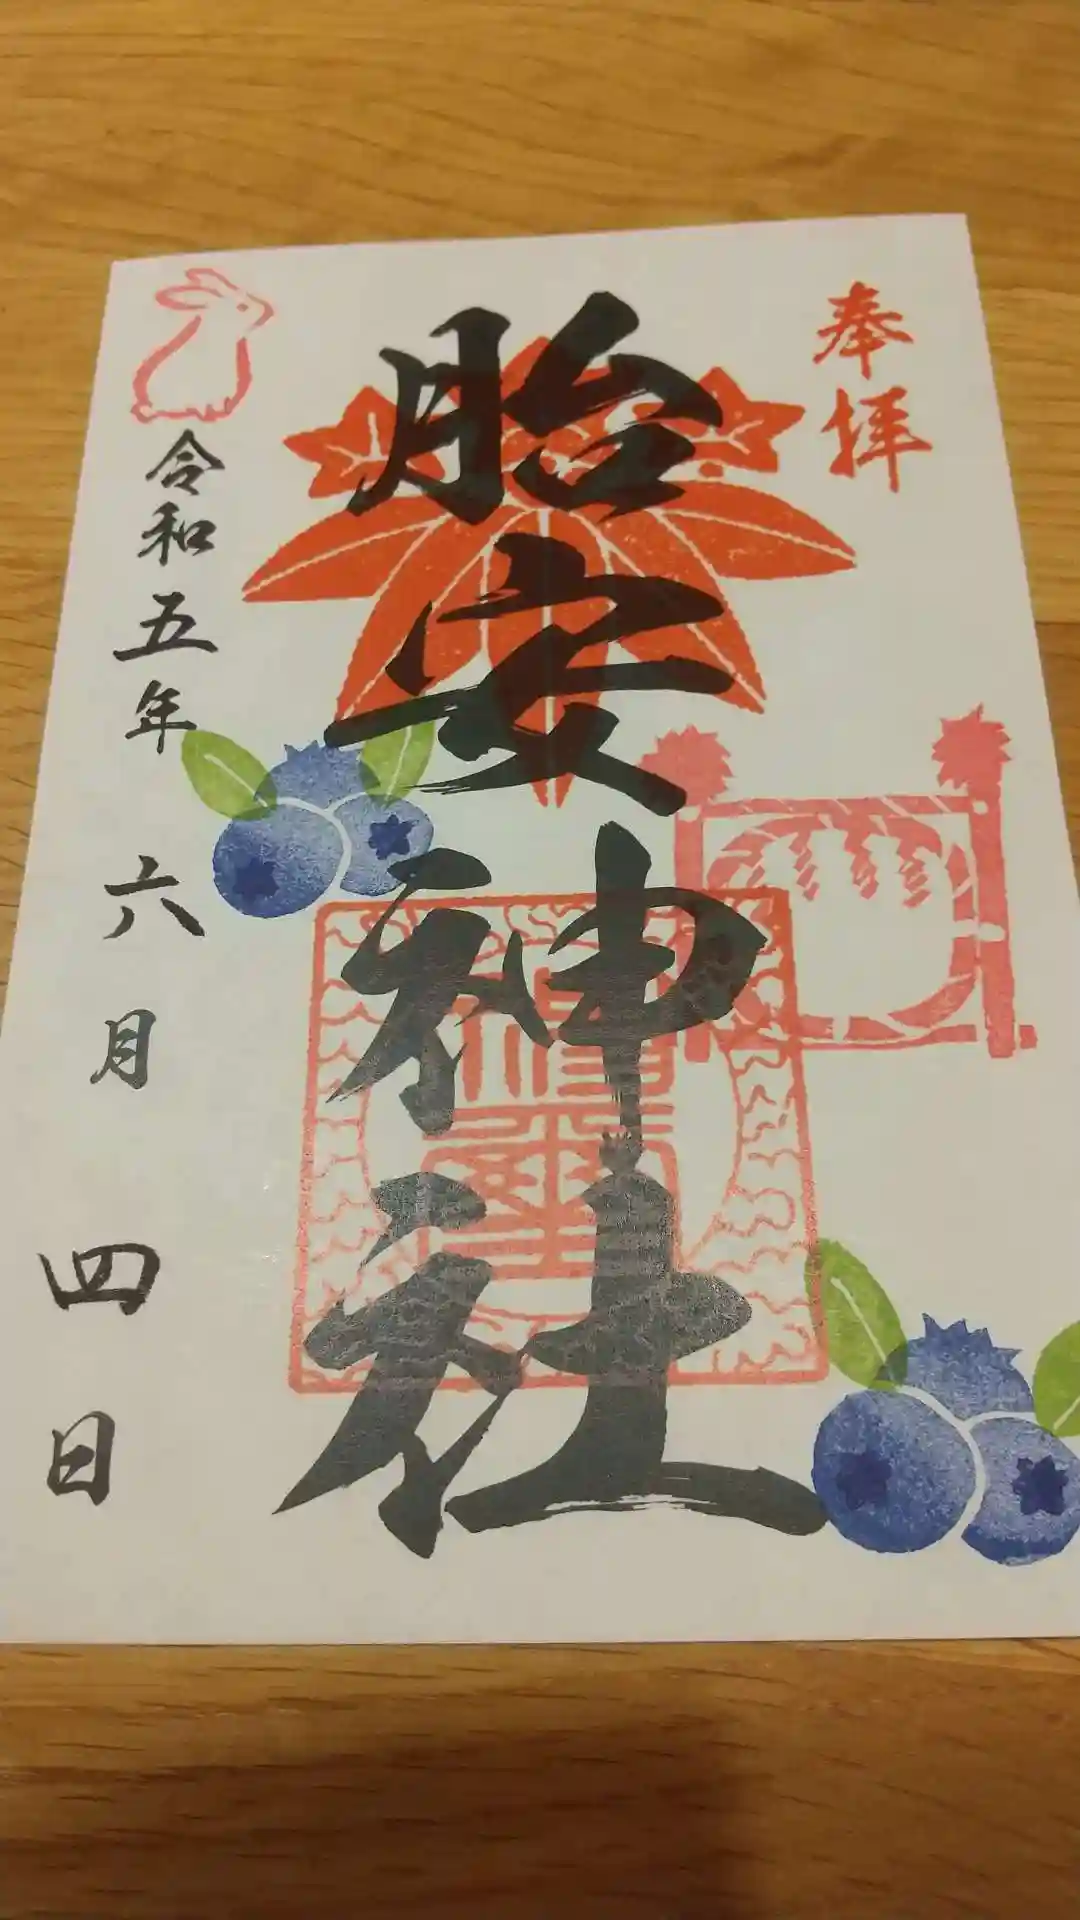 奉拝
胎安神社
令和五年六月四日